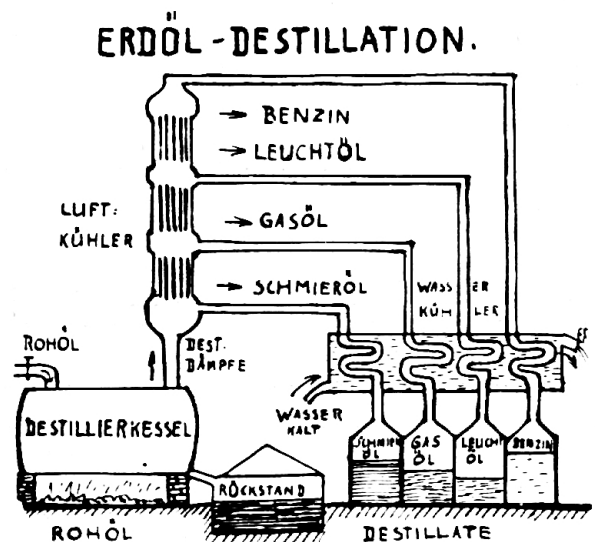 ERDÖL-DESTILLATION.
→ BENZIN
→ LEUCHTÖL
LUFT:
KÜHLER
→ GASÖL
→ SCHMIERÖL
WASSER
KÜHLER
ROHÖL
DEST.
DÄMPFE
WASSER
KALT
DESTILLIERKESSEL
SCHMIER
ÖL
GAS
ÖL
LEUCHT
ÖL
BENZIN
RÜCKSTAND
ROHÖL
DESTILLATE